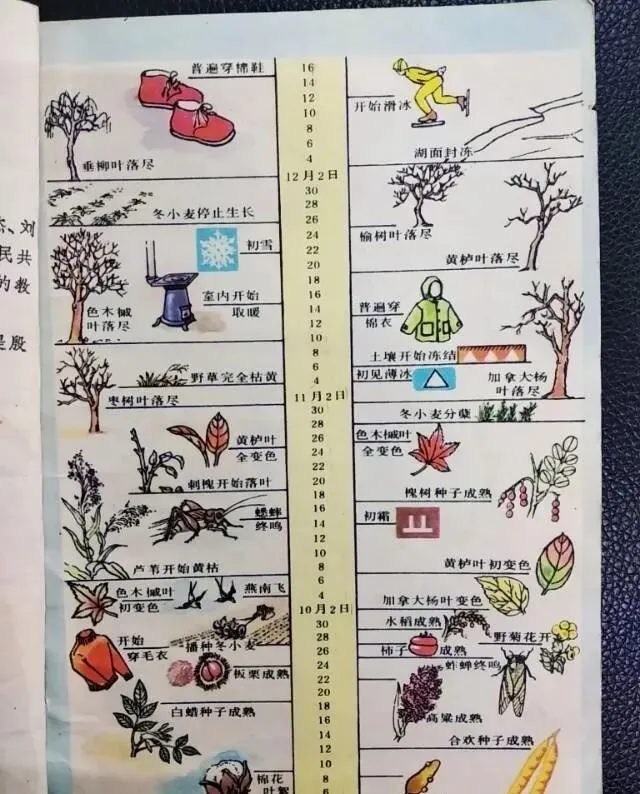 普遍穿棉鞋
16
14
12
开始滑冰
10
8
6
湖面封冻
垂柳叶落尽
4
12月2日
30
28
冬小麦停止生长
26
榆树叶落尽
24
初雪
22
黄栌叶落尽
20
18
室内开始
取暖
16
普遍穿
棉衣
色木槭
叶落尽
14
12
10
土壤开始冻结
8
6
野草完全枯黄
初见薄冰
加拿大杨
叶落尽
4
枣树叶落尽
11月2日
30
冬小麦分蘖
28
黄栌叶
全变色
26
色木槭叶
全变色
24
22
刺槐开始落叶
20
18
槐树种子成熟
16
蟋蟀
终鸣
初霜
14
12
10
芦苇开始黄枯
8
黄栌叶初变色
6
色木槭叶
初变色
燕南飞
4
加拿大杨叶变色
10月2日
水稻成熟
30
开始
穿毛衣
播种冬小麦
28
野菊花开
26
柿子
成熟
板栗成熟
24
蚱蝉终鸣
22
20
白蜡种子成熟
18
高粱成熟
16
14
合欢种子成熟
12
10
棉花
叶絮
8
6
、刘
民共
的教
是殷